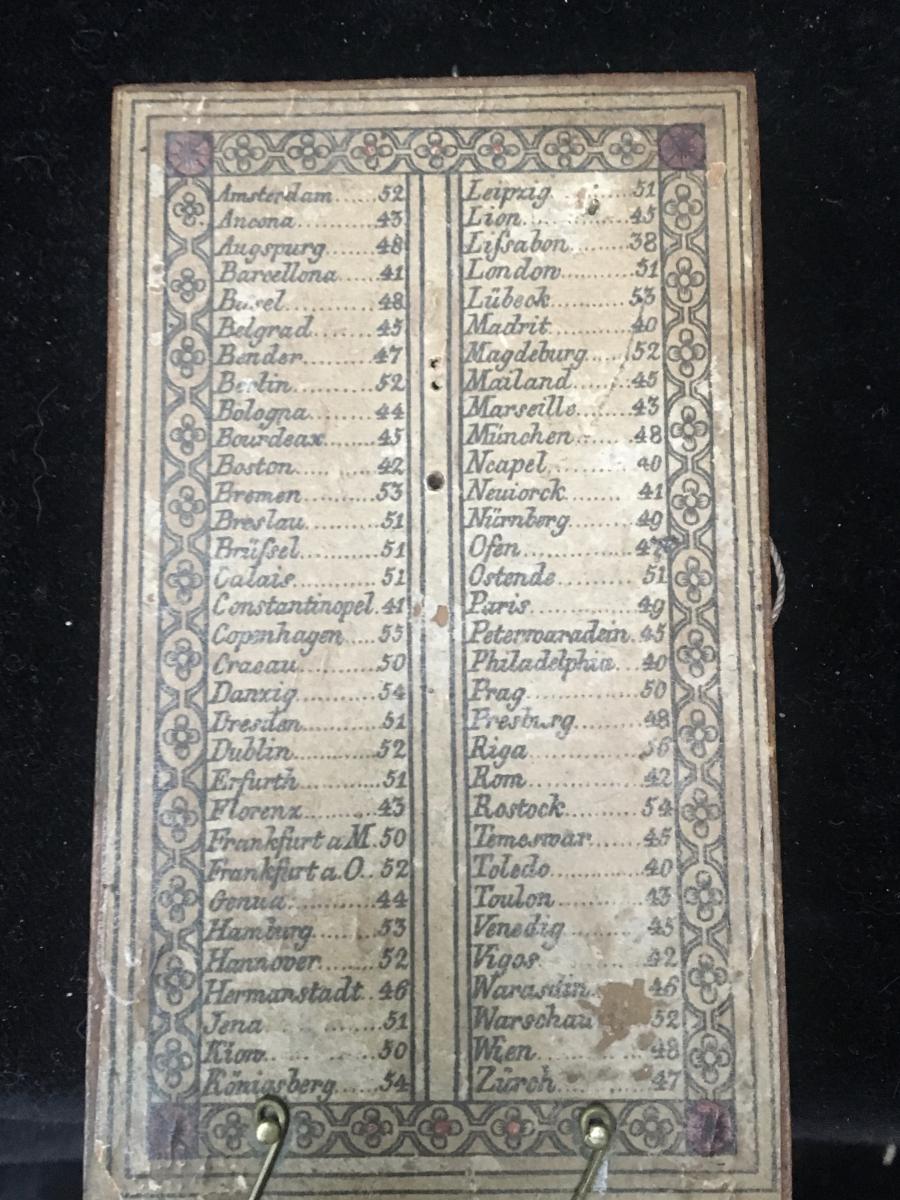 Amsterdam......52
Ancona..........43
Augspurg.......48
Barcellona......41
Basel............48
Belgrad.........45
Bender..........47
Berlin............52
Bologna.........44
Bourdeax.......45
Boston..........42
Bremen.........53
Breslau..........51
Brüſsel..........51
Calais............51
Constantinopel.41
Copenhagen....55
Cracau..........50
Danzig..........54
Dresden.........51
Dublin...........52
Erfurth..........51
Florenz..........43
Frankfurt a M.50
Frankfurt a.O..52
Genua...........44
Hamburg.......53
Hannover.......52
Hermanstadt..46
Jena.............51
Kiow.............50
Königsberg.....54
Leipzig..........51
Lion..............45
Liſsabon........38
London..........51
Lübeck..........53
Madrit..........40
Magdeburg.....52
Mailand.........45
Marseille.......43
München.......48
Neapel..........40
Neuiorck........41
Nürnberg.......49
Ofen.............47
Ostende.........51
Paris.............49
Peterwaradein.45
Philadelphia...40
Prag.............50
Presburg........48
Riga.............56
Rom..............42
Rostock.........54
Temeswar......45
Toledo...........40
Toulon..........43
Venedig.........45
Vigos............42
Warasdin.......46
Warschau.......52
Wien.............48
Zürch............47